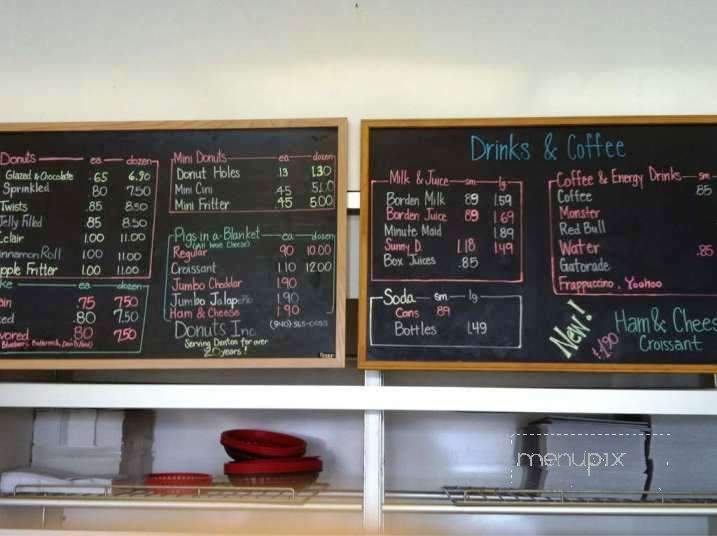 Donuts ea dozen
Glazed & Chocolate .65 6.90
Sprinkled .80 7.50
Twists .85 8.50
Jelly Filled .85 8.50
Eclair 1.00 11.00
Cinnamon Roll 1.00 11.00
Apple Fritter 1.00 11.00
ke ea dozen
ain .75 7.50
ced .80 7.50
vored .80 7.50
Blueberry, Buttermilk,
Mini Donuts ea dozen
Donut Holes .13 1.30
Mini Cini .45
Mini Fritter .45 5.00
Pigs in a Blanket ea dozen
(All have Cheese)
Regular .90 10.00
Croissant 1.10 12.00
Jumbo Cheddar 1.90
Jumbo Jalapeño 1.90
Ham & Cheese 1.90
Donuts Inc.
Serving Denton for over
20 years!
Drinks & Coffee
Milk & Juice sm lg
Borden Milk .89 1.59
Borden Juice .89 1.69
Minute Maid 1.89
Sunny D. 1.18 1.49
Box Juices .85
Soda sm lg
Cans .89
Bottles 1.49
Coffee & Energy Drinks sm
Coffee .85
Monster
Red Bull
Water .85
Gatorade
Frappuccino, Yoohoo
New!
$1.90
Ham & Chees
Croissant
menupix